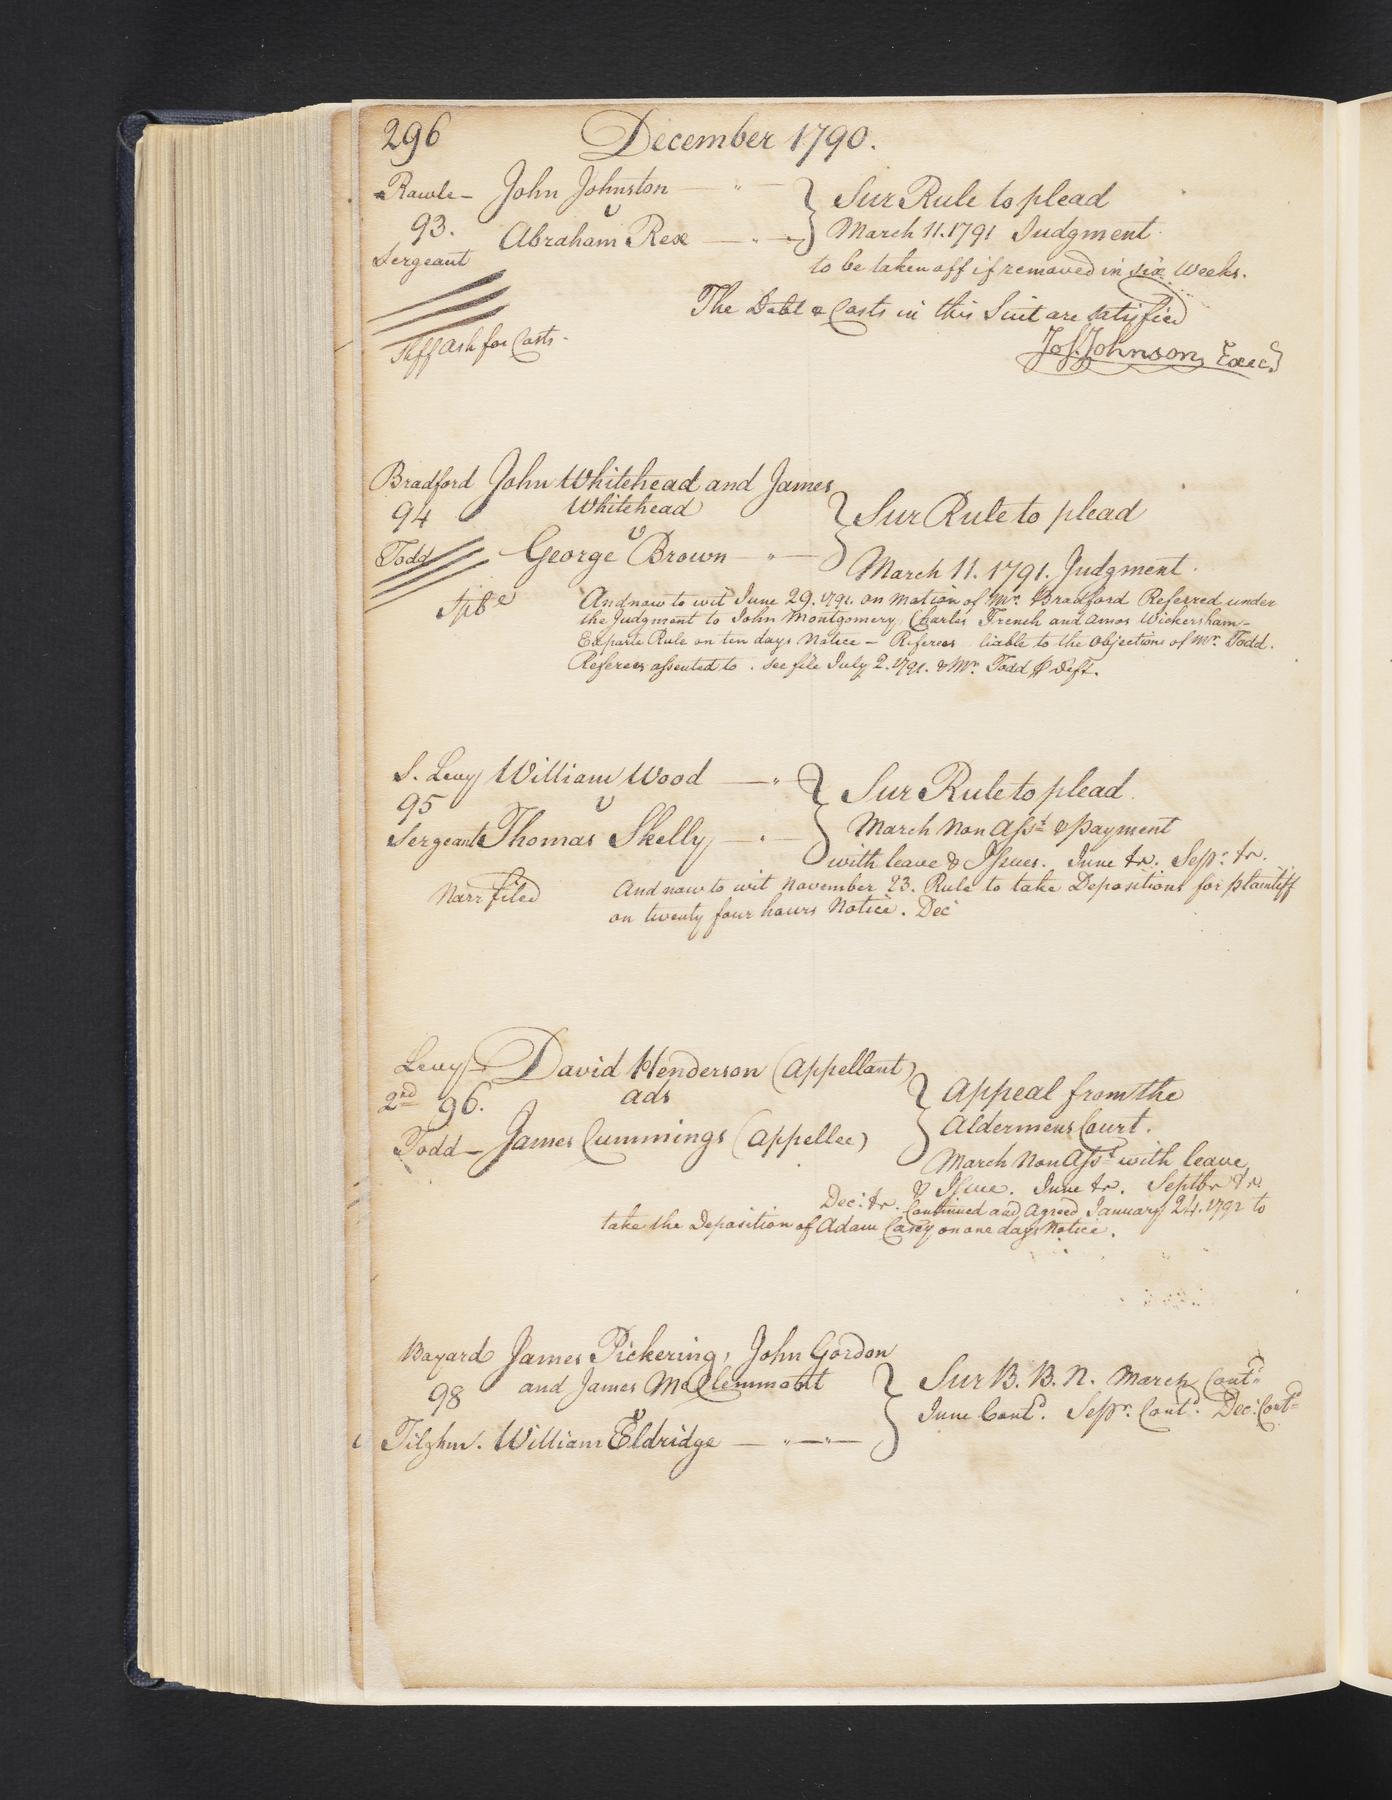 296 December 1790.
Rawle - John Johnston
v
93.
Sergeant Abraham Rex
Sur Rule to plead
March 11. 1791 Judgment
to be taken off if removed in six Weeks.
The Debt & Costs in this Suit are satisfied
Jos. Johnson, Exec.
ask for Costs.
Bradford John Whitehead and James
Whitehead
94
v
Todd George Brown
Sur Rule to plead
March 11. 1791. Judgment.
And now to wit June 29. 1791. on motion of Mr. Bradford Referred under
the Judgment to John Montgomery, Charles French and Amos Wickersham -
Exparte Rule on ten days Notice - Referees liable to the objections of Mr. Todd.
Referees assented to. see file July 2. 1791. & Mr. Todd Deft.
S. Levy William Wood
v
95
Sergeant Thomas Skelly
Sur Rule to plead
March Non Asst & payment
with leave & Issues. June tr. Sepr. tr.
Narr filed
And now to wit November 23. Rule to take Depositions for plaintiff
on twenty four hours Notice. Dec
Levy - David Henderson (Appellant)
2nd 96. ads
Todd - James Cummings (Appellee)
Appeal from the
Aldermens Court.
March Non Asst with leave
& Issue. June tr. Septbr tr.
Dec: tr. Continued and Agreed January 24. 1792 to
take the Deposition of Adam Casey on one days Notice.
Bayard James Pickering, John Gordon
and James McClemmont
98
v
Tilghm. William Eldridge
Sur B. B. N. March Contd
June Contd. Sepr. Contd. Dec: Contd